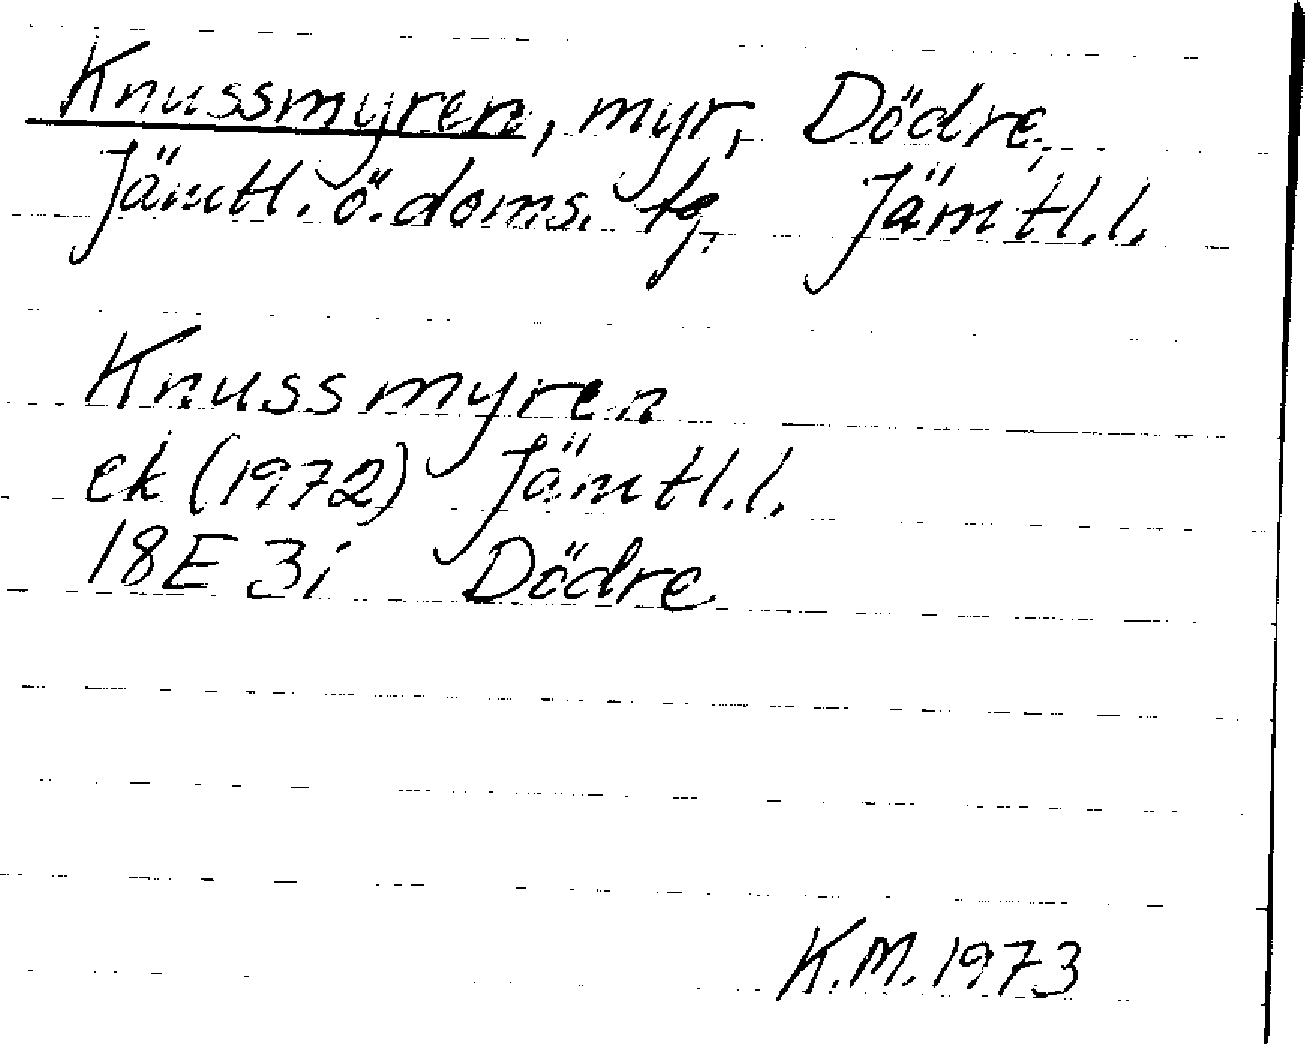 Knussmyren, myr, Dödre,
Jämtl. ö. doms. tg, Jämtl.l.
Knussmyren
ek (1972) Jämtl.l.
18E 3i Dödre
K.M. 1973